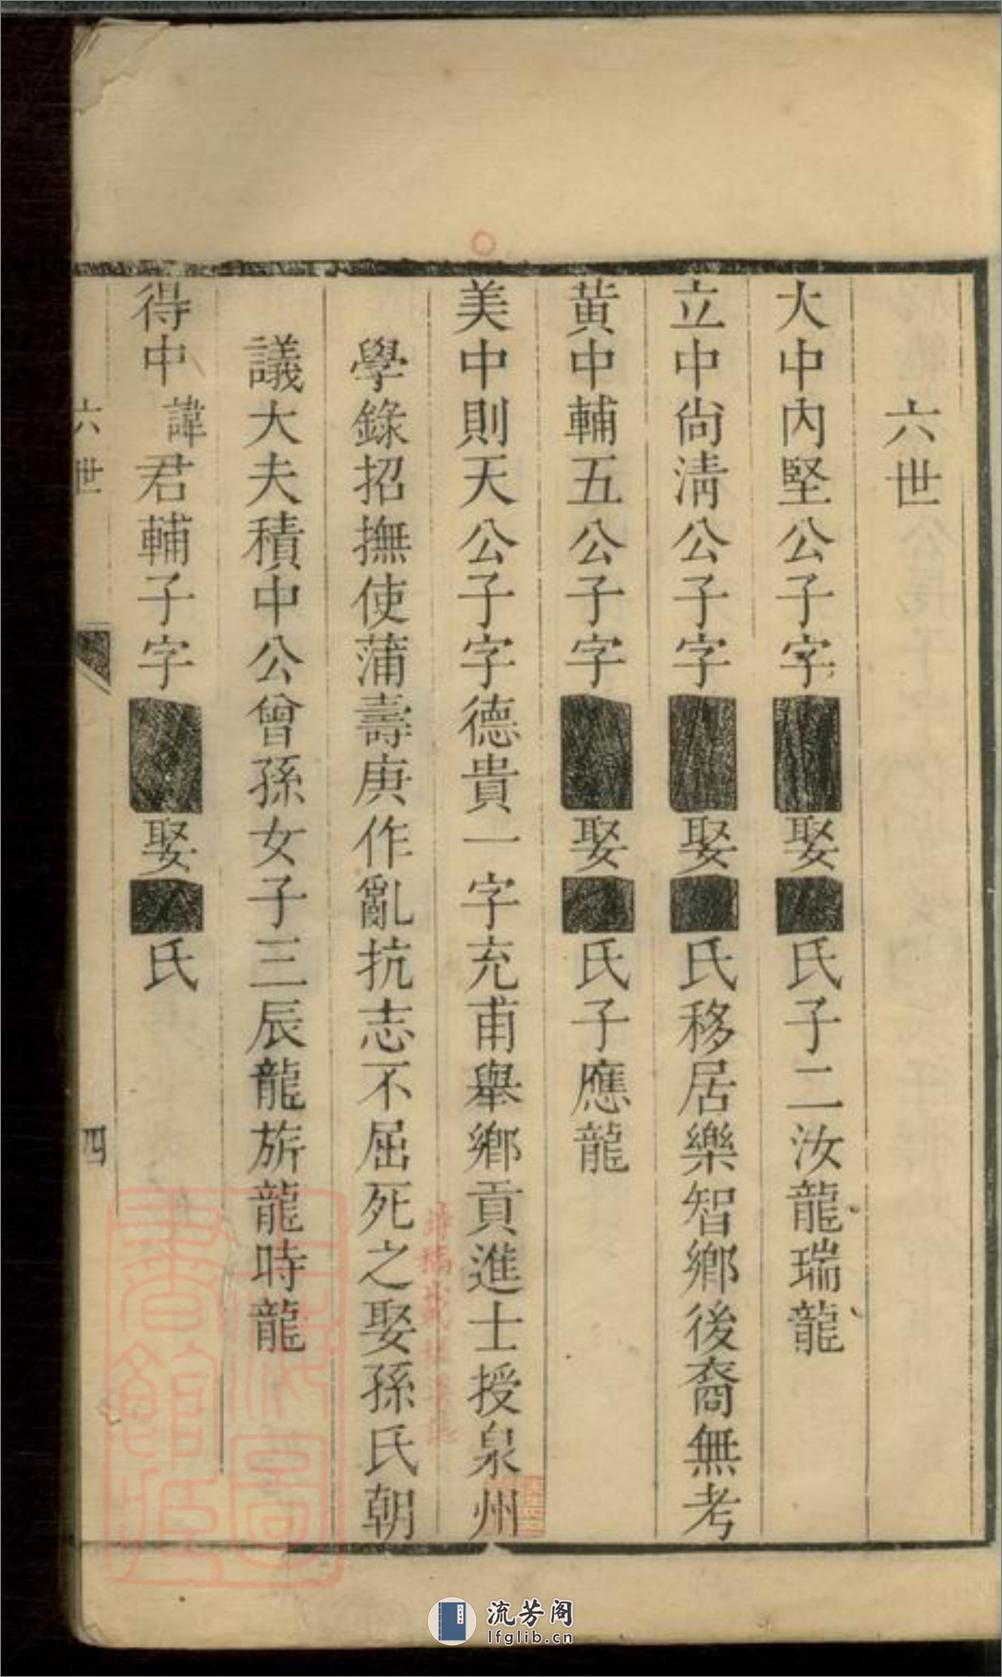 六世
大中內堅公子字■■娶■氏子二汝龍瑞龍
立中尚淸公子字■■娶■氏移居樂智鄉後裔無考
黄中輔五公子字■■娶■氏子應龍
美中則天公子字德貴一字充甫舉鄉貢進士授泉州
學錄招撫使蒲壽庚作亂抗志不屈死之娶孫氏朝
議大夫積中公曾孫女子三辰龍旂龍時龍
得中諱君輔子字■■娶■氏
六世
四
流芳阁
lfglib.cn